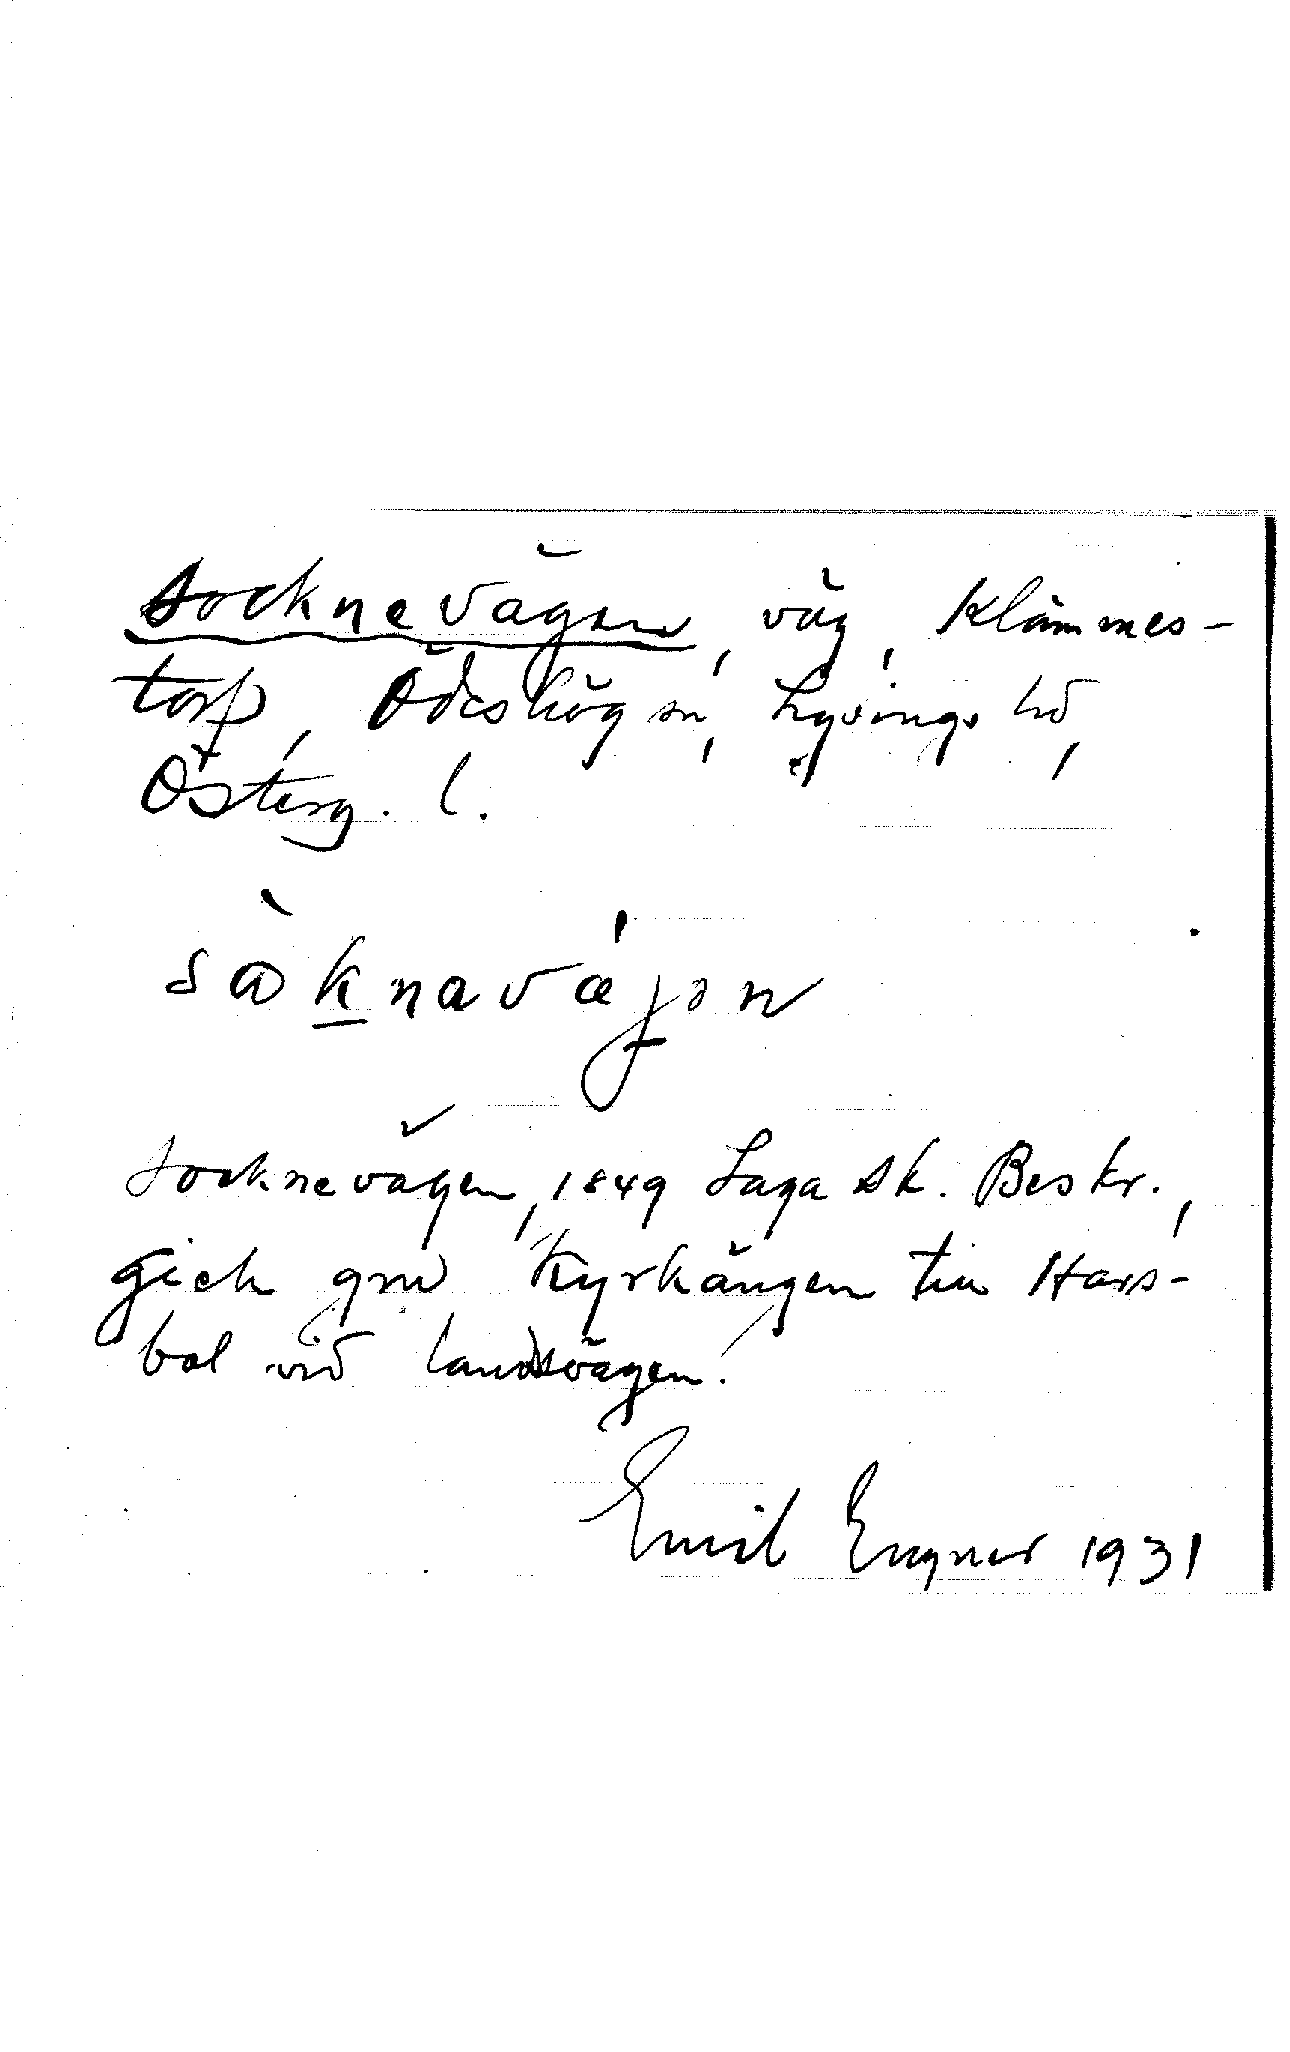 Socknevägen, väg, Klämmes-
torp, Ödeshög sn, Lysings hd,
Österg. l.
såknavæjən
Socknevägen, 1849 Laga Sk. Beskr.,
gick gm Kyrkängen till Hars-
bol vid landsvägen.
Emil Engner 1931